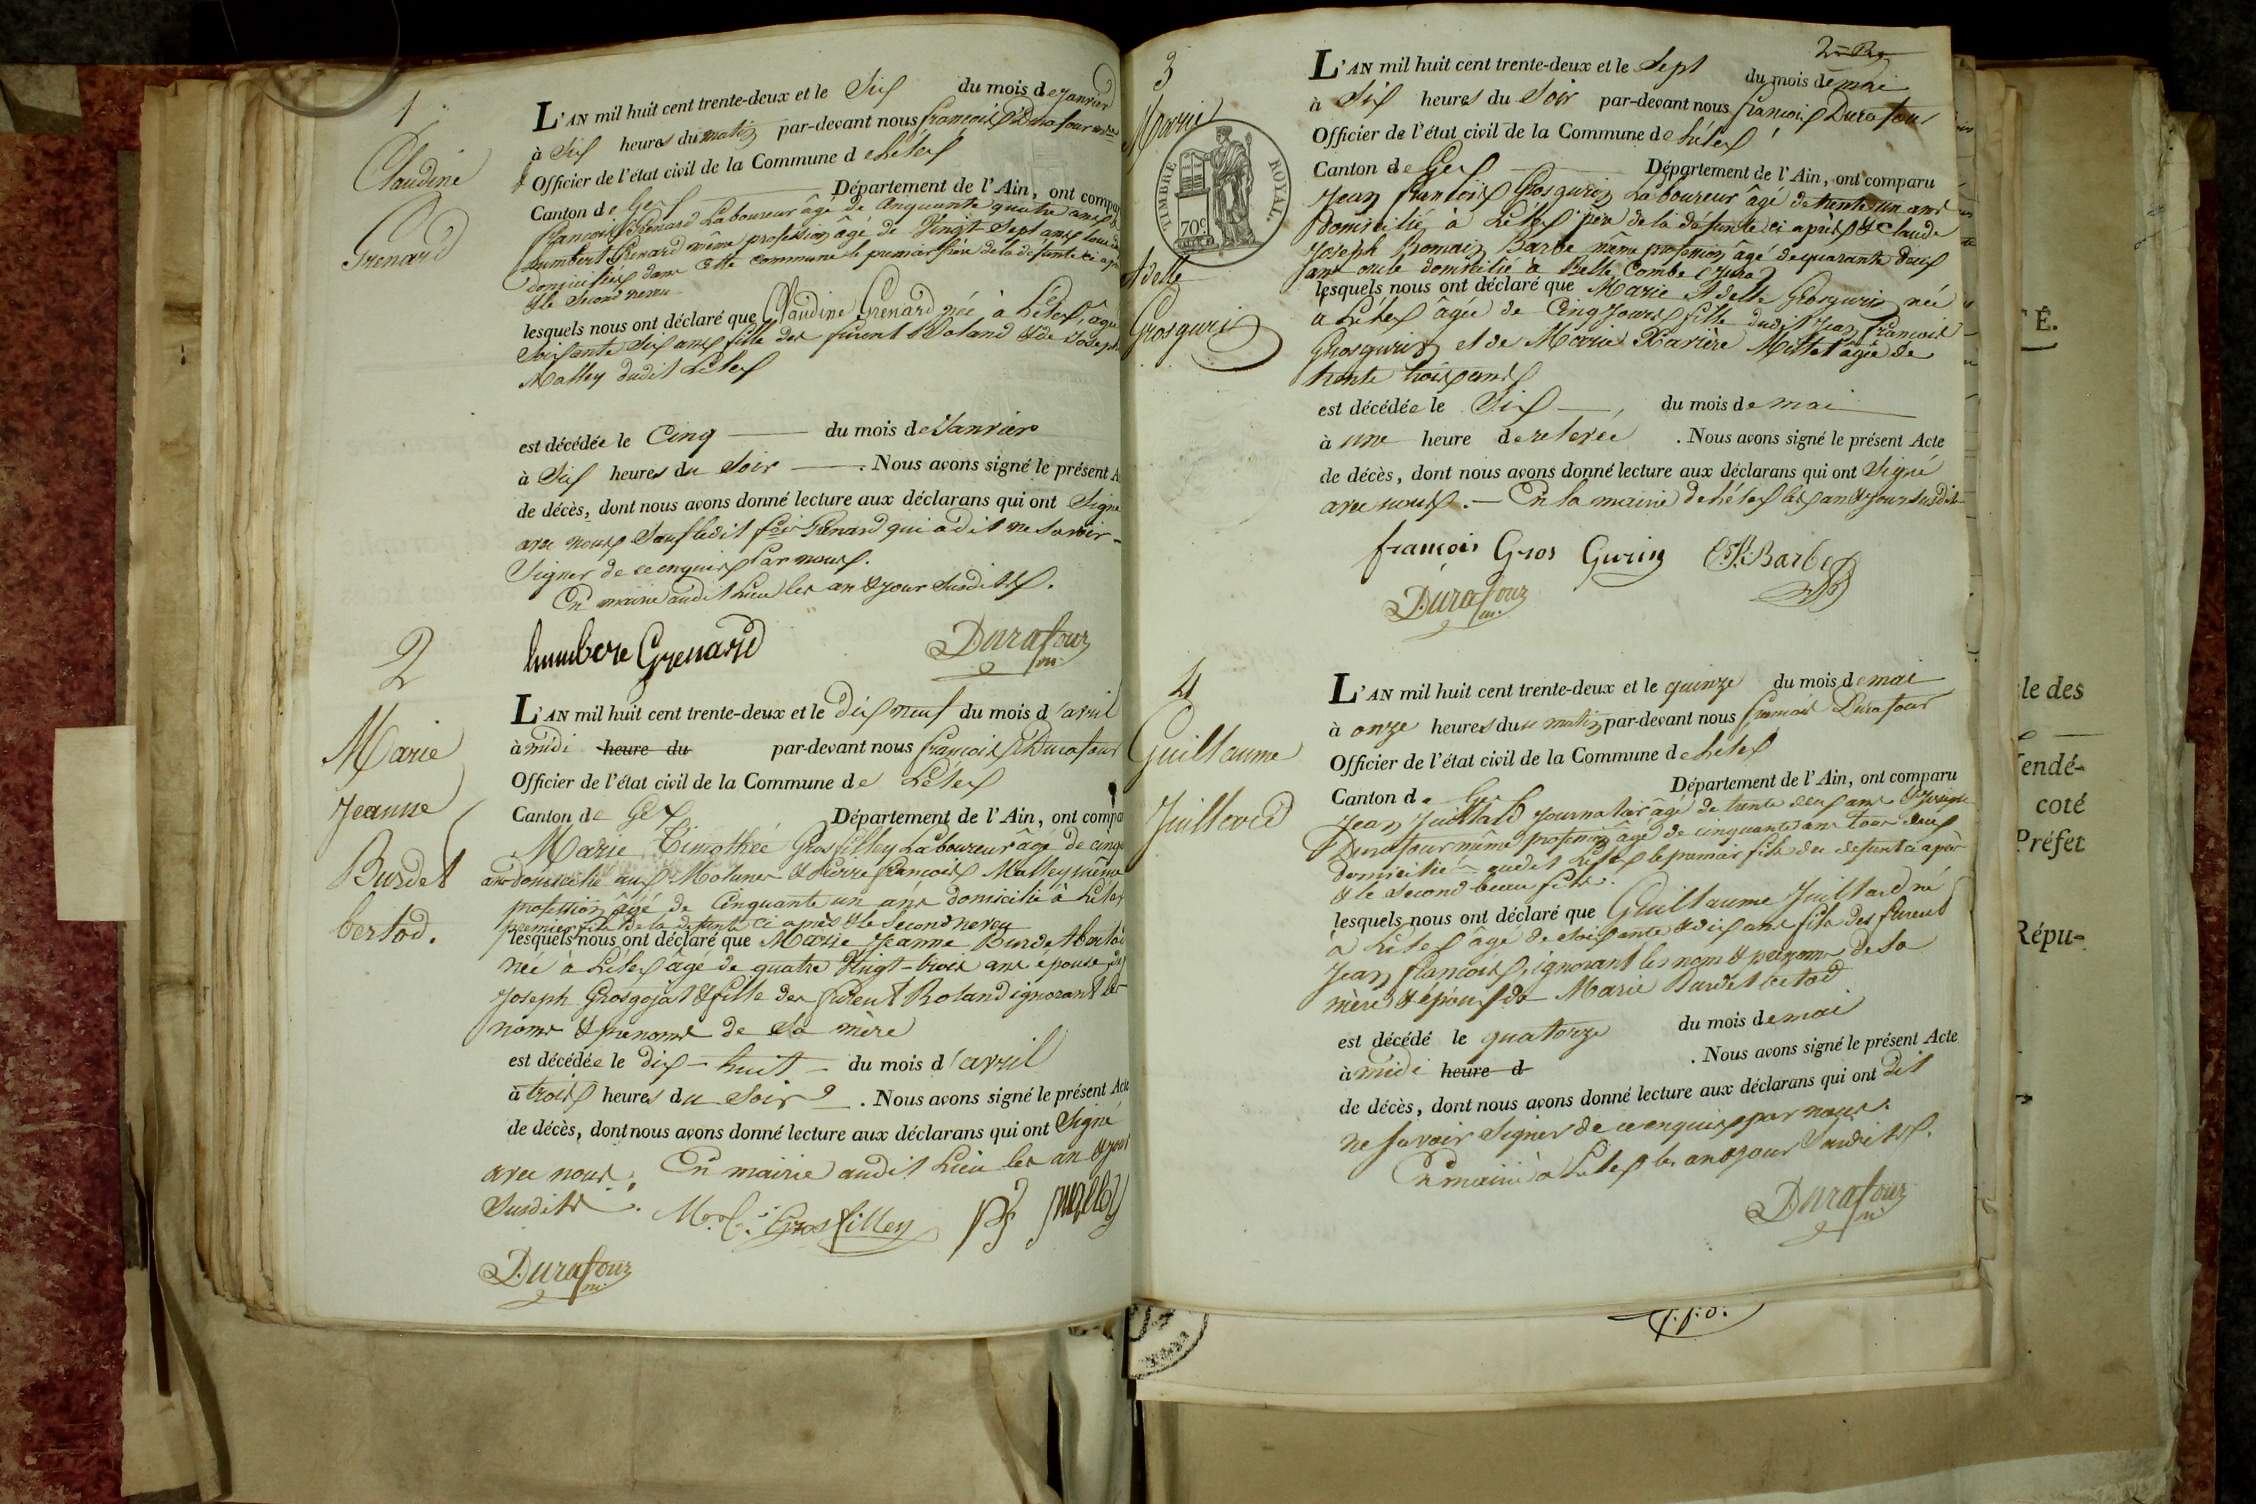 1
Claudine
Grenard
L'AN mil huit cent trente-deux et le Six du mois de Janvier
à Six heures du matin par-devant nous françois Durafour
Officier de l'état civil de la Commune de Lélex
Canton de Gex Département de l'Ain, ont compar
françois Grenard Laboureur âgé de Cinquante quatre ans &
humbert Grenard même profession âgé de Vingt Sept ans tous
domiciliés dans cette commune le premier frère de la défunte ci a
& le Second neveu
lesquels nous ont déclaré que Claudine Grenard née à Lélex, âgée
Soixante Six ans fille des furent Roland & de Joseph
Malley dudit Lélex
est décédée le Cinq du mois de Janvier
à Six heures du Soir . Nous avons signé le présent A
de décès, dont nous avons donné lecture aux déclarans qui ont Signé
avec nous Sauf ledit fçois Grenard qui a dit ne Savoir
Signer de ce enquis Par nous.
En mairie audit Lieu les an & jour Susdits.
humbere Grenard Durafour m.
2
Marie
Jeanne
Burdet
bertod.
L'AN mil huit cent trente-deux et le dix neuf du mois d'avril
à midi heure du par-devant nous françois Durafour
Officier de l'état civil de la Commune de Lélex
Canton de Gex Département de l'Ain, ont compa
Marie Timothée Grosfilley Laboureur âgé de cinq
ans domicilié aux Molunes & Pierre françois Malley même
profession âgé de Cinquante un ans domicilié à Lélex
premier fils de la défunte ci après & le Second neveu
lesquels nous ont déclaré que Marie Jeanne Burdet bertod
née à Lélex âgé de quatre Vingt-trois ans épouse de
Joseph Grosgojat & fille des furent Roland ignorant les
noms & prenoms de Sa mère
est décédée le dix-huit du mois d'avril
à trois heures du Soir . Nous avons signé le présent Acte
de décès, dont nous avons donné lecture aux déclarans qui ont Signé
avec nous. En mairie audit Lieu les an & jour
Susdits. M. t. Grosfilley pf malley
Durafour m.
3
Marie
Adelle
Grosgurin
TIMBRE ROYAL
70 c.
L'AN mil huit cent trente-deux et le Sept du mois de mai
à Six heures du Soir par-devant nous françois Durafour
Officier de l'état civil de la Commune de Lélex
Canton de Gex Département de l'Ain, ont comparu
Jean françois Grosgurin Laboureur âgé de trente un ans
Domicilié à Lélex père de la défunte ci après & Claude
Joseph Romain Barbe même profession âgé de quarante deux
ans oncle domicilié à Belle Combe (Jura)
lesquels nous ont déclaré que Marie Adelle Grosgurin née
à Lélex âgée de Cinq Jours fille dudit Jean François
Grosgurin et de Marie Xavière Millet âgée de
trente trois ans
est décédée le Six du mois de mai
à une heure de relevée . Nous avons signé le présent Acte
de décès, dont nous avons donné lecture aux déclarans qui ont Signé
avec nous. - En la mairie de Lélex les an & jour Susdits
françois Gros Gurin C.J.R. Barbe
Durafour m.
4
Guillaume
Juillard
L'AN mil huit cent trente-deux et le quinze du mois de mai
à onze heures du matin par-devant nous françois Durafour
Officier de l'état civil de la Commune de Lélex
Canton de Gex Département de l'Ain, ont comparu
Jean Juillard Journalier âgé de trente deux ans & Joseph
Durafour même profession âgé de cinquante ans tous deux
domiciliés audit Lélex le premier fils du défunt ci après
& le Second beau frère.
lesquels nous ont déclaré que Guillaume Juillard né
à Lélex âgé de Soixante & dix ans fils des furent
Jean françois, ignorant les noms & prenoms de Sa
mère & époux de Marie Burdet bertod
est décédé le quatorze du mois de mai
à midi heure d . Nous avons signé le présent Acte
de décès, dont nous avons donné lecture aux déclarans qui ont dit
ne Savoir Signer de ce enquis par nous.
En mairie à Lélex les an & jour Susdits.
Durafour m.
É.
le des
endé-
coté
Préfet
Répu-